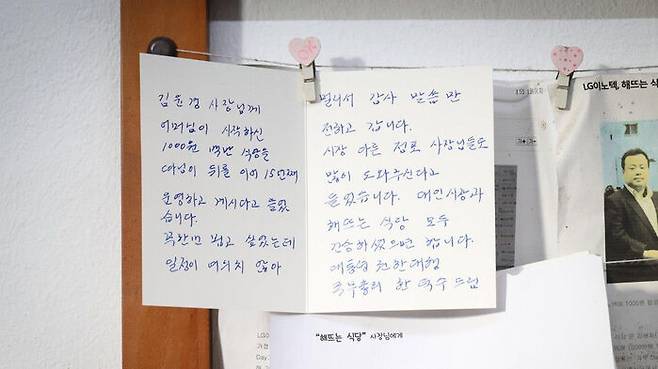 김윤경 사장님께
어머님이 시작하신
1000원 백반 식당을
따님이 뒤를 이어 15년째
운영하고 계시다고 들었
습니다.
꼭 한번 뵙고 싶었는데
일정이 여의치 않아
멀리서 감사 말씀만
전하고 갑니다.
시장 다른 점포 사장님들도
많이 도와주신다고
들었습니다. 대인시장과
해뜨는 식당 모두
건승하셨으면 합니다.
대통령 권한대행
국무총리 한덕수 드림
LG이노텍, 해뜨는 식
"해뜨는 식당" 사장님에게